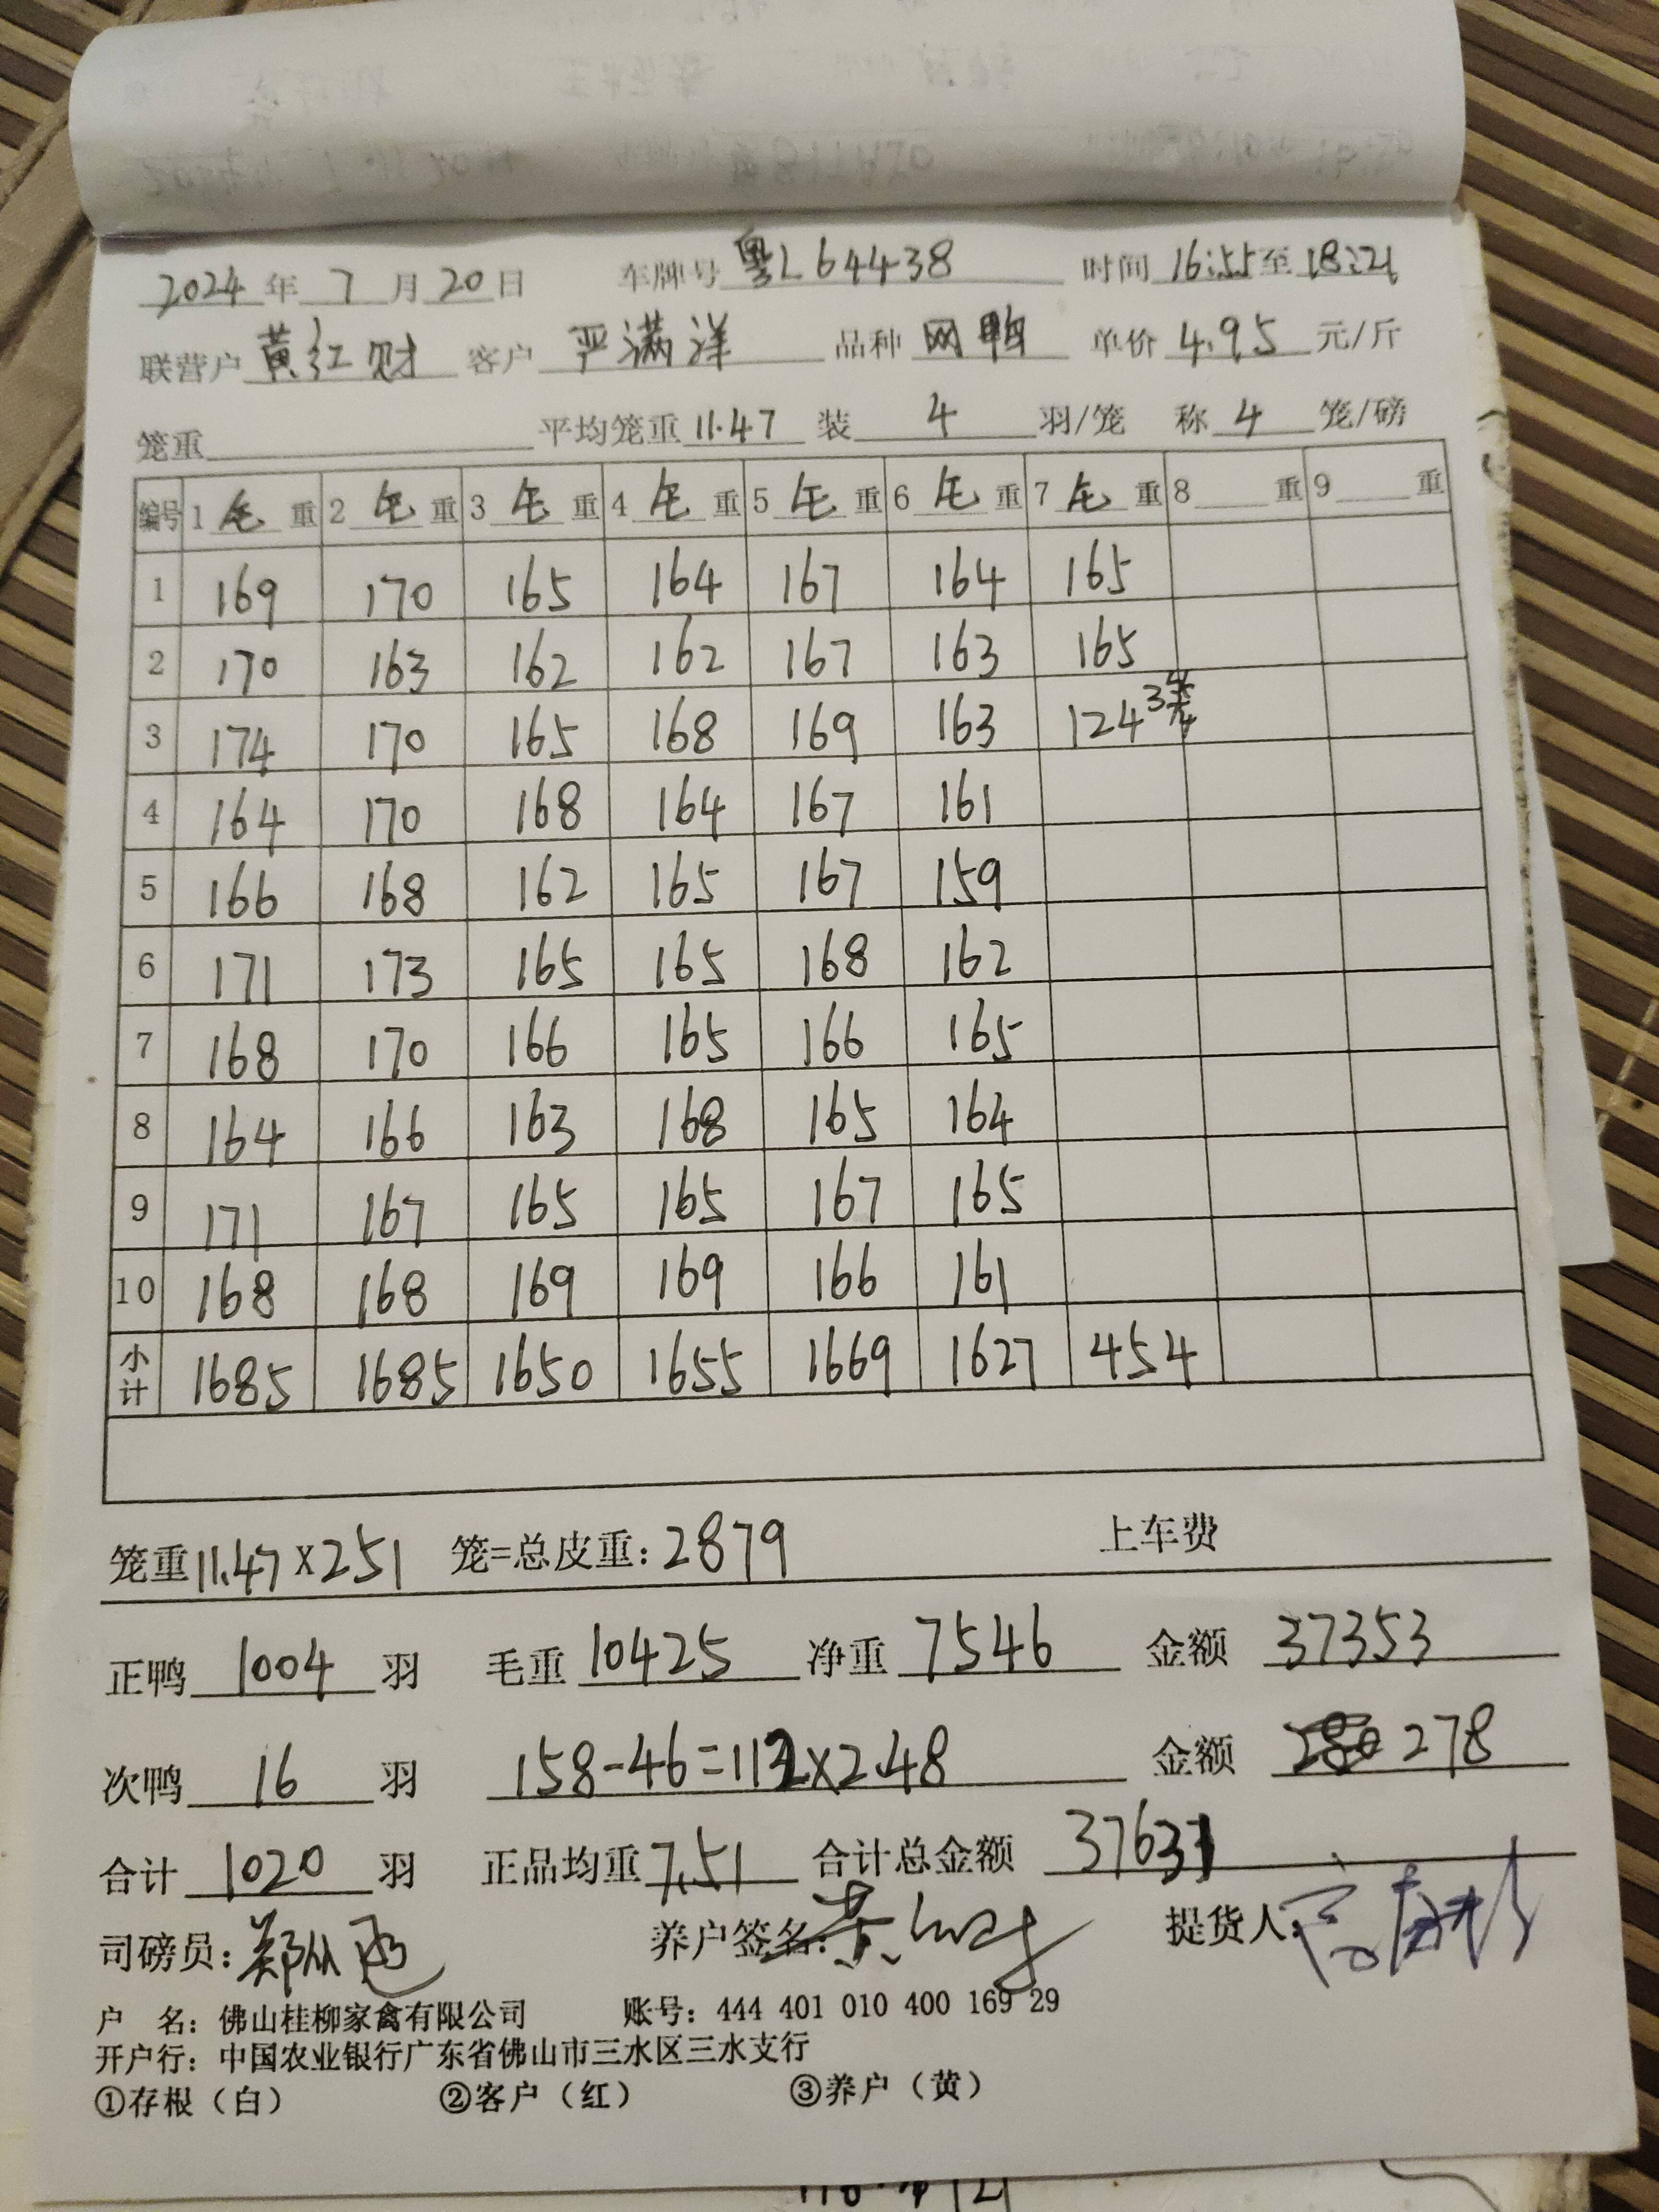 2024年7月20日 车牌号 粤L64438 时间 16:55至18:21
联营户 黄红财 客户 严满洋 品种 网鸭 单价 4.95 元/斤
笼重 平均笼重 11.47 装 4 羽/笼 称 4 笼/磅
编号 1 毛 重 2 毛 重 3 毛 重 4 毛 重 5 毛 重 6 毛 重 7 毛 重 8 重 9 重
1 169 170 165 164 167 164 165
2 170 163 162 162 167 163 165
3 174 170 165 168 169 163 124 3笼
4 164 170 168 164 167 161
5 166 168 162 165 167 159
6 171 173 165 165 168 162
7 168 170 166 165 166 165
8 164 166 163 168 165 164
9 171 167 165 165 167 165
10 168 168 169 169 166 161
小计 1685 1685 1650 1655 1669 1627 454
笼重 11.47×251 笼=总皮重: 2879 上车费
正鸭 1004 羽 毛重 10425 净重 7546 金额 37353
次鸭 16 羽 158-46=112×2.48 金额 278
合计 1020 羽 正品均重 7.51 合计总金额 37631
司磅员: 养户签名: 提货人:
户 名: 佛山桂柳家禽有限公司 账号: 444 401 010 400 169 29
开户行: 中国农业银行广东省佛山市三水区三水支行
①存根（白） ②客户（红） ③养户（黄）